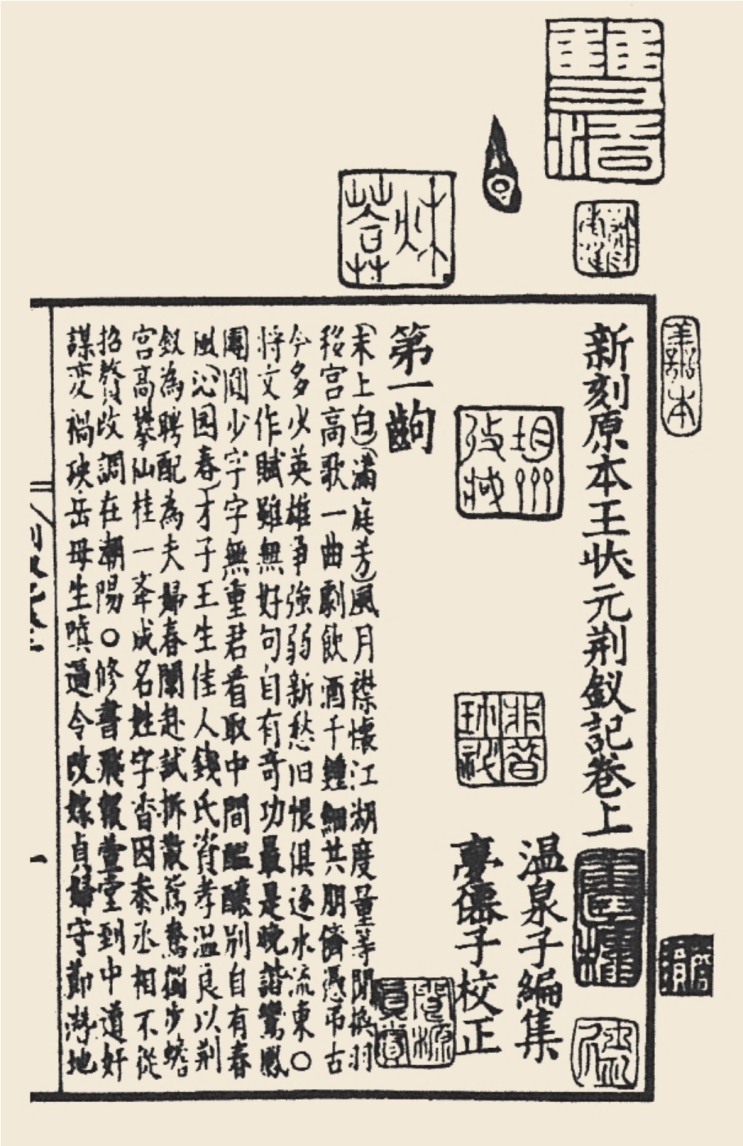 新刻原本王狀元荆釵記卷上
温泉子編集
夢僊子校正
第一齣
(末上白)(滿庭芳)風月襟懷江湖度量等閒換羽
移宮高歌一曲劇飲酒千鍾細共朋儕憑弔古
今多少英雄爭強弱新愁旧恨俱逐水流東○
將文作賦雖無好句自有奇功最是晚諧鸞鳳
團圓少字字無重君看取中間醞釀別自有春
風(沁园春)才子王生佳人錢氏賢孝温良以荆
釵為聘配為夫婦春闈赴試拆散鴛鴦獨步蟾
宮高攀仙桂一举成名姓字香因参丞相不從
招贅改調在潮陽○修書飛報萱堂到中道奸
謀变禍殃岳母生嗔逼令改嫁貞婦守節潜地
一